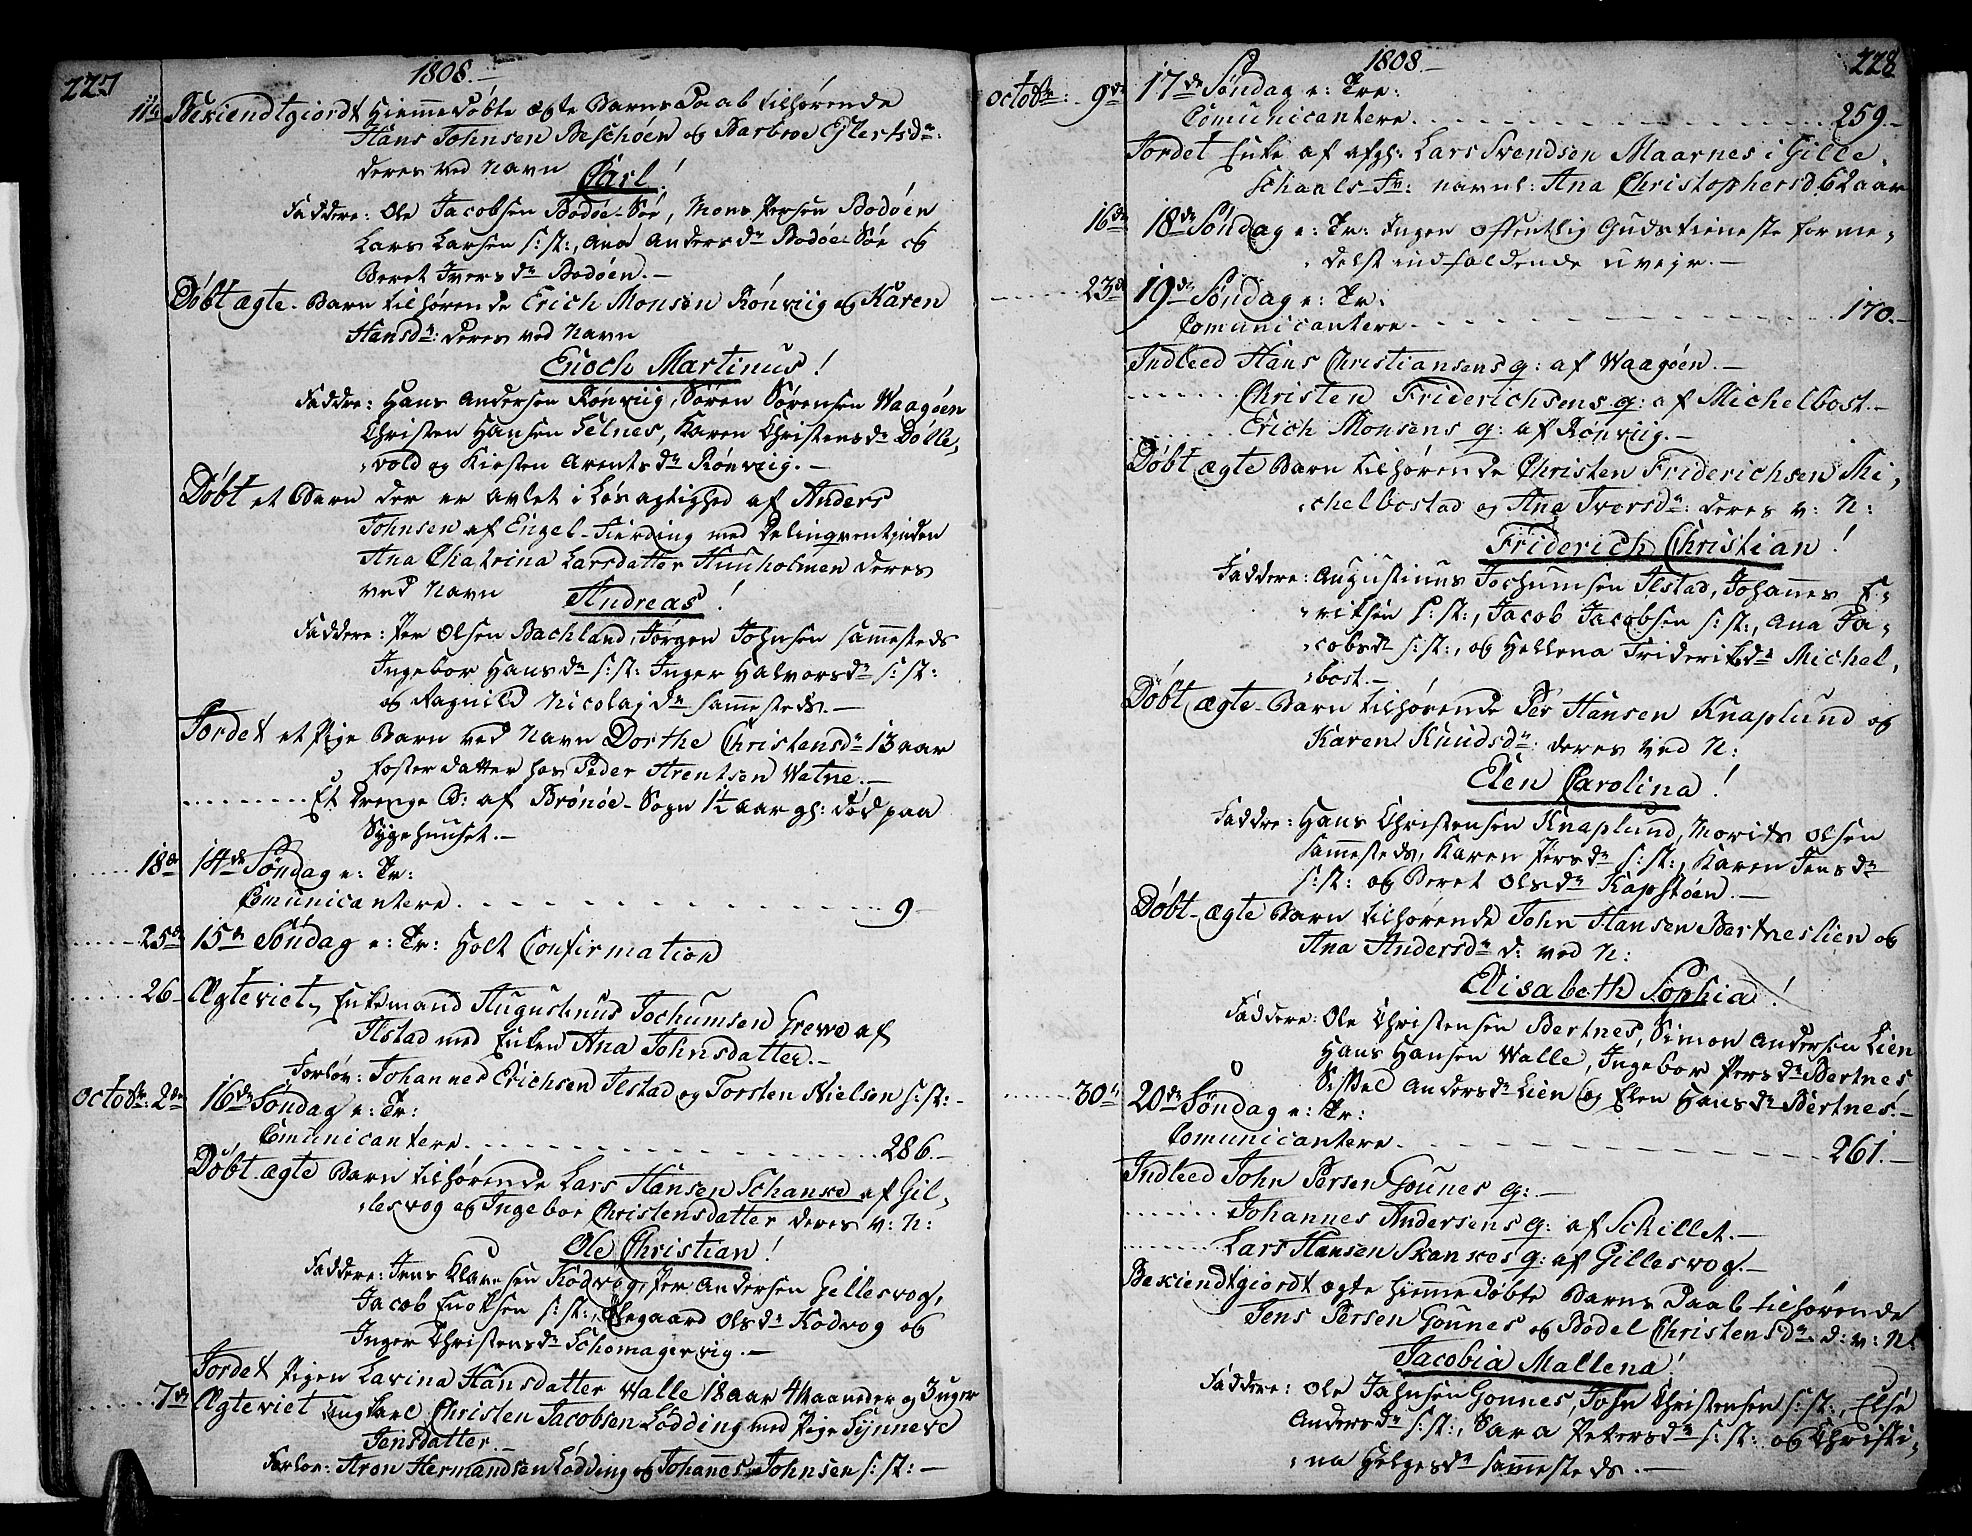 227
1808.-
11te Bekiendtgiordt Hiemmedøbte ægte Barns Daab tilhørende
Hans Johnsen Beschøen og Barbroe Eflertsdr:
deres ved Navn Carl!
Faddere: Ole Jacobsen Bodøe-Søe, Mons Persen Bodøen
Lars Larsen s: st:, Ana Andersdr Bodøe-Søe og
Beret Iversdr Bodøen.-
Døbt ægte Barn tilhørende Erich Monsen Rønviig og Karen
Hansdr: deres ved Navn
Enoch Martinus!
Faddre: Hans Andersen Rønviig, Søren Sørensen Waagøen
Christen Hansen Selnes, Karen Christensdr Dølle,
vold og Kirsten Arentsdr Rønviig.-
Døbt et Barn der er avlet i Løsagtighed af Anders
Johnsen af Engel-Fierding med Delinqventinden
Ana Chatrina Larsdatter Huuholmen deres
ved Navn Andreas!
Faddere: Per Olsen Bachland, Jørgen Johnsen sammesteds
Ingebor Hansdr s: st: Inger Halvorsdr s: st:
og Ragnild Nicolajdr sammesteds.-
Jordet et Pige Barn ved Navn Dorthe Christensdr 13 aar
foster datter hos Peder Arentsen Watne.-
Et Drenge B: af Brønøe-Sogn 1½ aar gl: død paa
Sygehuuset.-
18de 14de Søndag e: Tr:
Comunicantere. 9
25de 15de Søndag e: Tr: Holt Confirmation
26- Ægteviet, Enkemand Augustinus Jochumsen Grewe af
Ilstad med Enken Ana Johnsdatter.-
Forlov: Johannes Erichsen Ilstad og Torsten Nielsen s: st:-
Octobr: 2den 16de Søndag e: Tr:
Comunicantere. 286.-
Døbt ægte Barn tilhørende Lars Hansen Schanke af Gil,
lesvog og Ingebor Christensdatter deres v: N:
Ole Christian!
Faddere: Jens Klausen Kodvog, Per Andersen Gillesvog,
Jacob Enoksen s: st:, Olegaard Olsdr Kodvog og
Inger Christensdr Schomagervig.-
Jordet Pigen Lavina Hansdatter Walle 18 aar 4 Maaneder og 3 uger
7de Ægteviet Ungkarl Christen Jacobsen Lødding med Pige Synneve
Jensdatter.-
Forlov: Aron Hermandsen Lødding og Johannes Johnsen s: st:-
228
1808-
Octobr: 9de 17de Søndag e: Tre:
Comunicantere. 259.-
Jordet Enke af afgl: Lars Svendsen Maarnes i Gille,
Schaals-Fr: navnl: Ana Christophersd. 62 aar
16de 18de Søndag e: Tr: Ingen offentlig Gudstieneste forme,
delst indfaldende uvejr.-
23de 19de Søndag e: Tr:
Comunicantere. 170.-
Indleed Hans Christiansens q: af Waagøen.-
Christen Friderichsens q: af Michelbost.-
Erich Monsens q: af Rønviig.-
Døbt ægte Barn tilhørende Christen Friderichsen Mi,
chelbostad og Ana Iversdr: deres v: N:
Friderich Christian!
Faddere: Augustinus Jochumsen Ilstad, Johannes E,
riksen s: st:, Jacob Jacobsen s: st:, Ana Ja,
cobsdr s: st:, og Hellena Frideriksdr Michel,
bost.-
Døbt ægte Barn tilhørende Per Hansen Knaplund og
Karen Knudsdr: deres ved N:
Elen Carolina!
Faddre: Hans Christensen Knaplund, Morits Olsen
sammesteds, Karen Persdr s: st:, Karen Jensdr
s: st: og Beret Olsdr Kapstøen.-
Døbt ægte Barn tilhørende John Hansen Bertneslien og
Ana Andersdr d: ved N:
Elisabeth Sophia!
Faddere: Ole Christensen Bertnes, Simon Andersen Lien
Hans Hansen Walle, Ingebor Persdr Bertnes
Sissel Andersdr Lien og Elen Hansdr Bertnes.-
30te 20de Søndag e: Tr:
Comunicantere. 261.-
Indleed John Persen Gounes q:-
Johannes Andersens q: af Schillet.-
Lars Hansen Skankes q: af Gillesvog.-
Bekiendtgiordt ægte hiemmedøbte Barns Daab tilhørende
Jens Persen Gounes og Bodel Christensdr. d: v: N:
Jacobia Mallena!
Faddere: Ole Jahnsen Gonnes, John Christensen s: st:, Else
Andersdr s: st:, Sara Petersdr s: st: og Christi,
na Helgesdr sammesteds.-